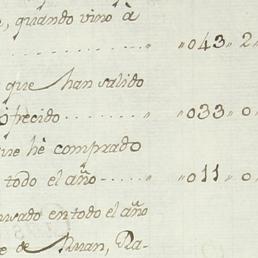 quando vino à
" 043 " 2 "
que han salido
ofrecido ------ " " 033 " 0
que hè comprado
todo el año ----- " " 011 " 0
en todo el año
de Ruan, Ra-